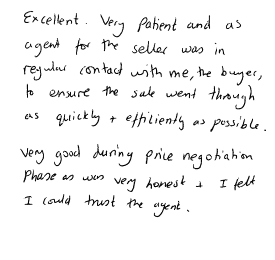 Excellent. Very Patient and as
agent for the seller was in
regular contact with me, the buyer,
to ensure the sale went through
as quickly + efficiently as possible.
Very good during price negotiation
Phase as was very honest + I felt
I could trust the agent.